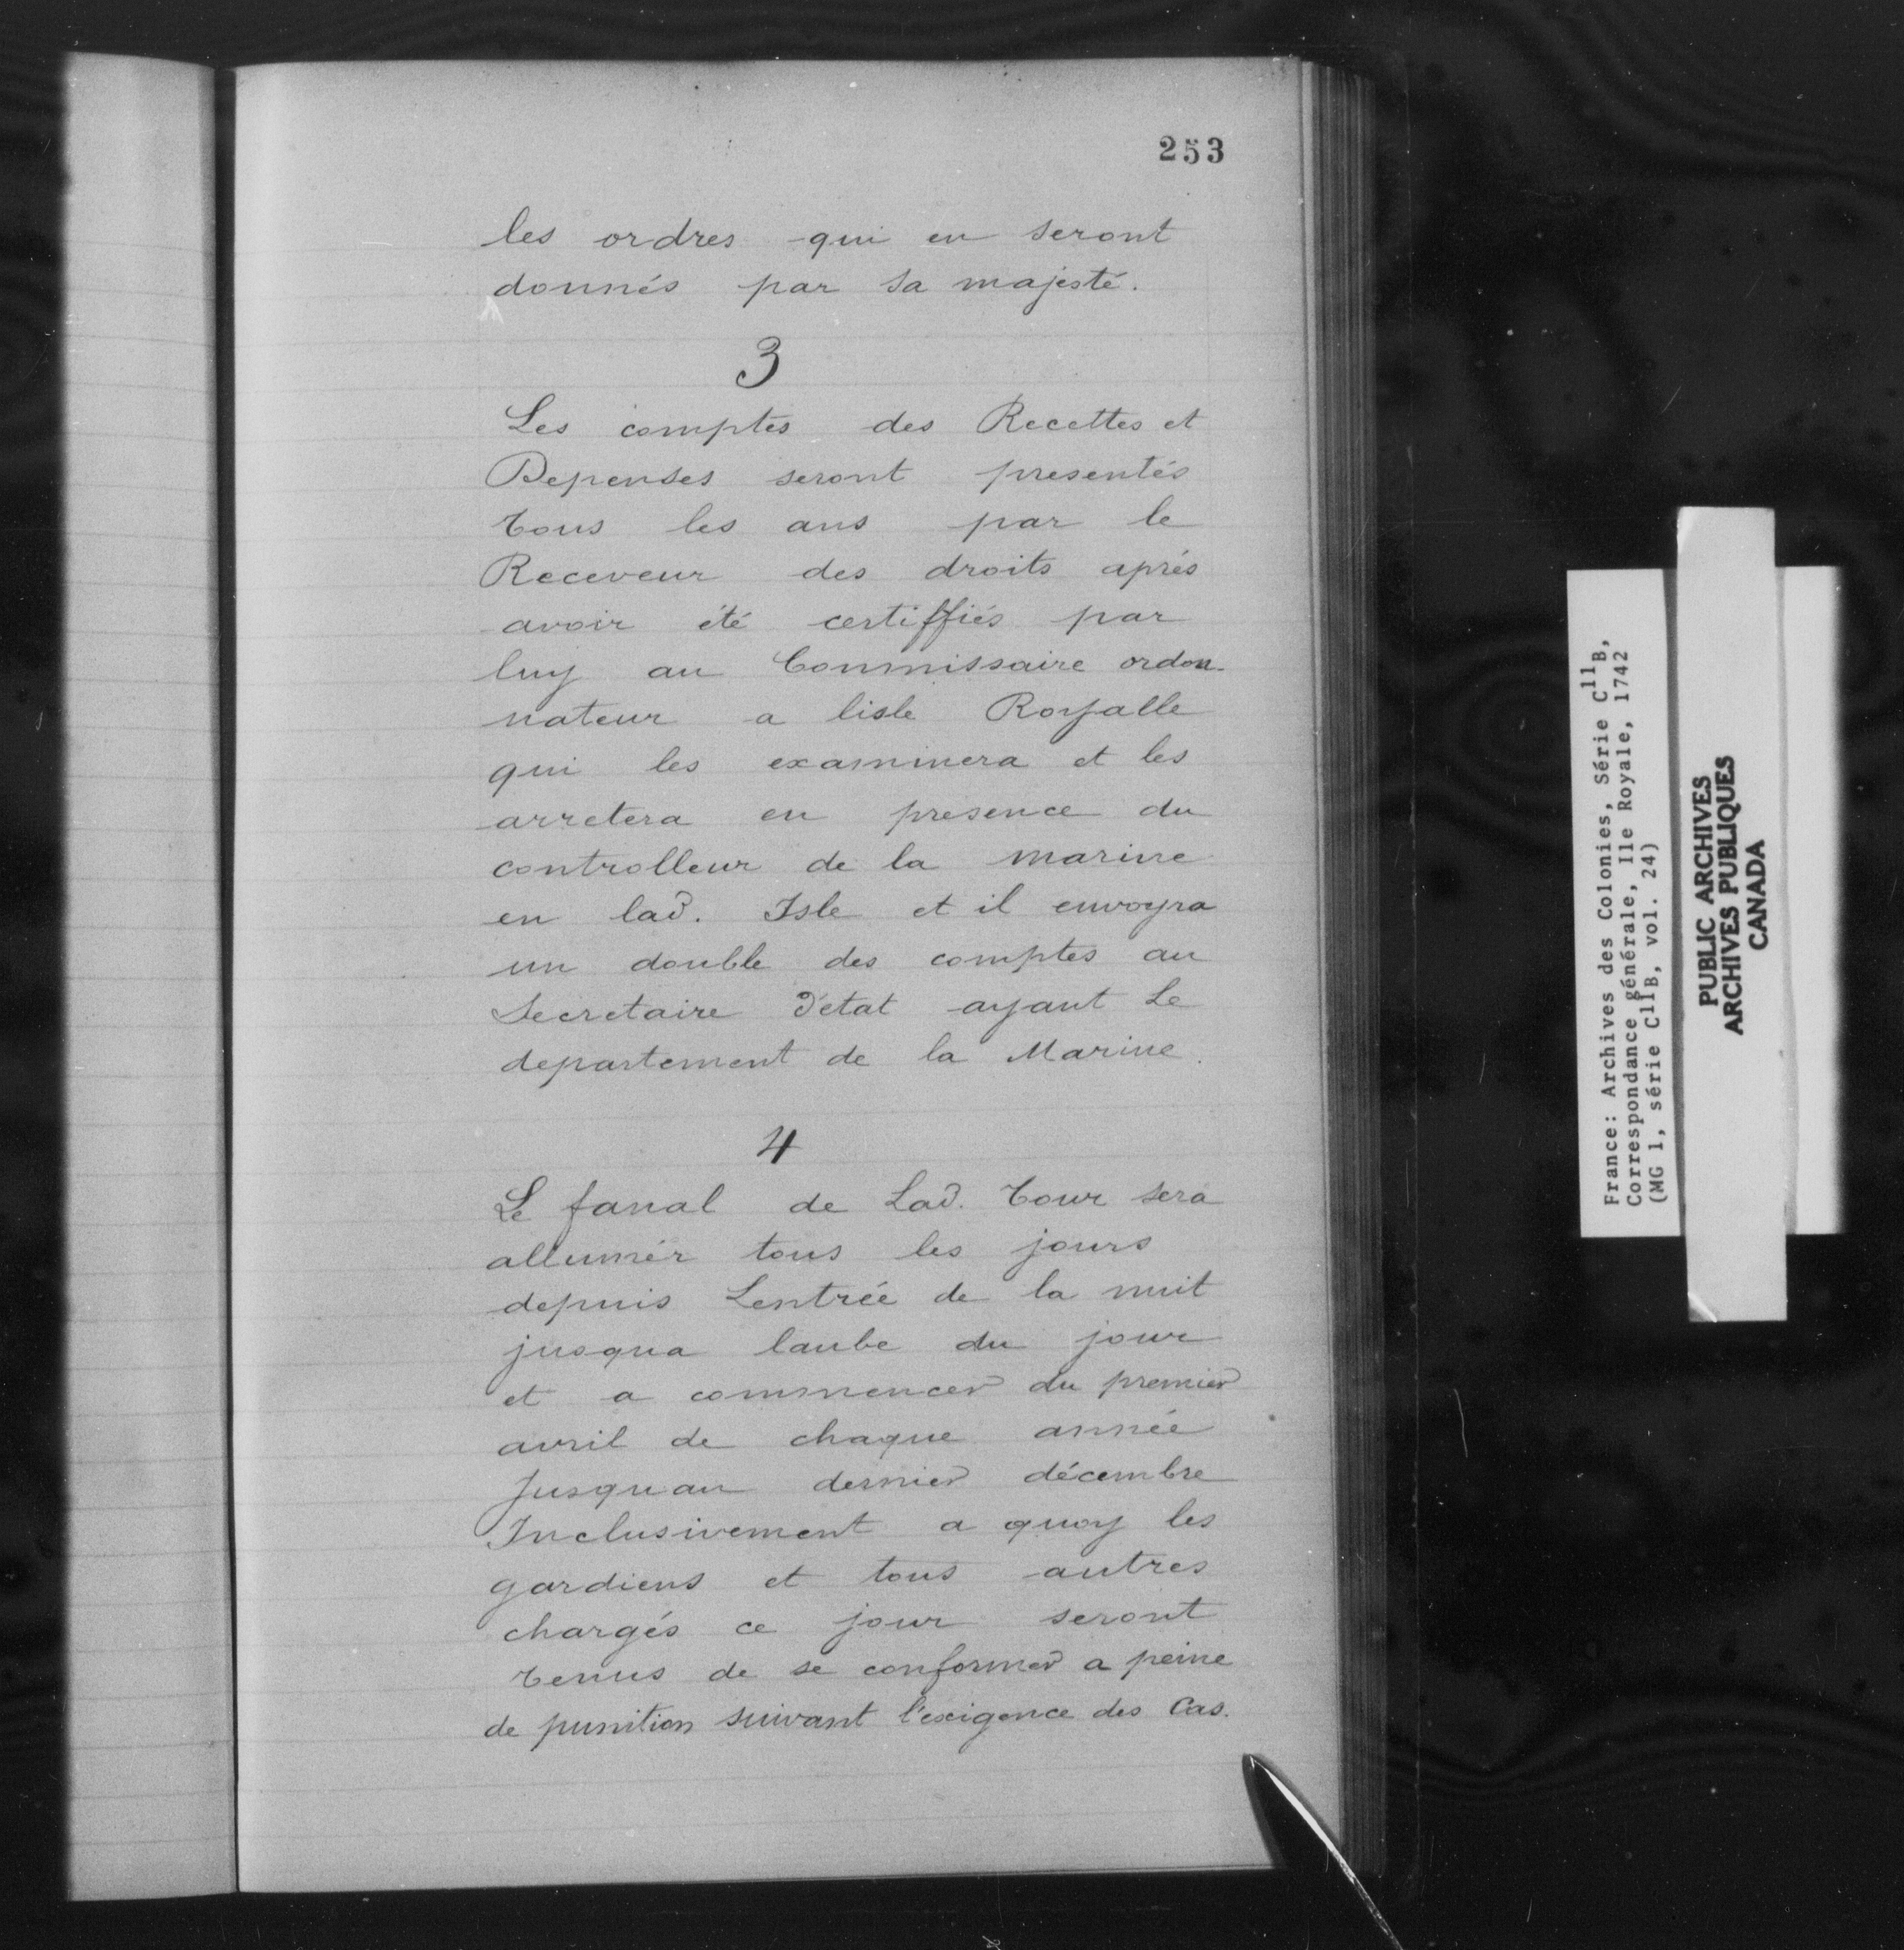 253
les ordres qui en seront
donnés par sa majesté.
3
Les comptes des Recettes et
Depenses seront presentés
tous les ans par le
Receveur des droits aprés
avoir été certiffiés par
luy au Commissaire ordon-
nateur a lisle Royalle
qui les examinera et les
arretera en presence du
controlleur de la marine
en lad. Isle et il envoyra
un double des comptes au
Secretaire d'etat ayant Le
departement de la Marine.
4
Le fanal de Lad. tour sera
allumér tous les jours
depuis Lentrée de la nuit
jusqua laube du jour
et a commencer du premier
avril de chaque année
Jusquau dernier décembre
Inclusivement a quoy les
gardiens et tous autres
chargés ce jour seront
tenus de se conformer a peine
de punition suivant l'exigence des Cas.
France: Archives des Colonies, Série C11B,
Correspondance générale, Ile Royale, 1742
(MG 1, série C11B, vol. 24)
PUBLIC ARCHIVES
ARCHIVES PUBLIQUES
CANADA